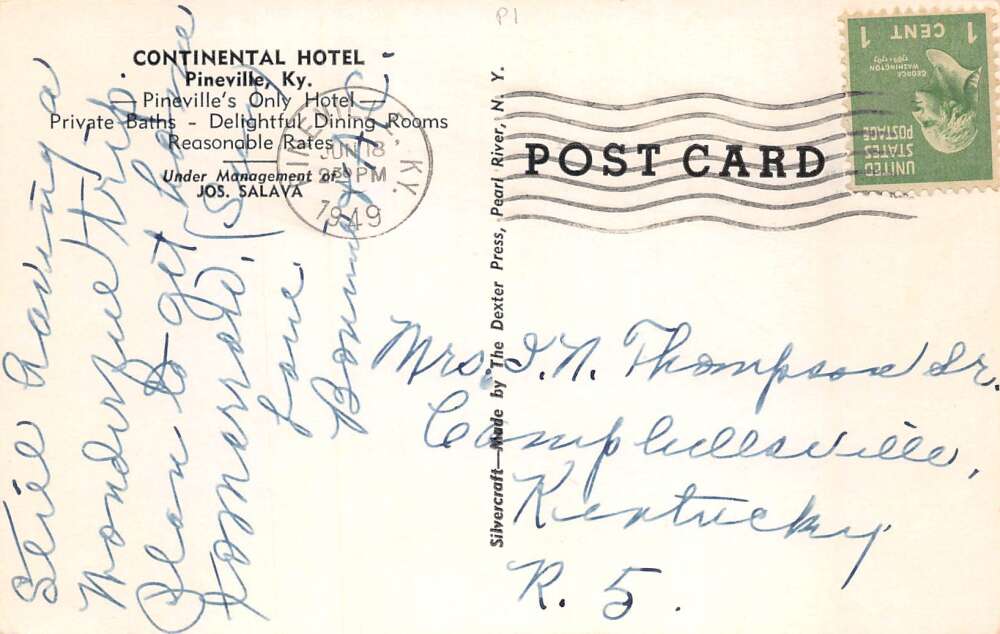 P1
CONTINENTAL HOTEL
Pineville, Ky.
Pineville's Only Hotel
Private Baths - Delightful Dining Rooms
Reasonable Rates
Under Management of
JOS. SALAVA
PINEVILLE, KY.
JUN 18
230 PM
1949
1 CENT 1
GEORGE WASHINGTON
1789-1797
UNITED STATES POSTAGE
POST CARD
Silvercraft—Made by The Dexter Press, Pearl River, N. Y.
Still having a
wonderful trip.
Plan to get home
tomorrow. (Sun)
Love
Bonnie &
Mrs. I. N. Thompson Sr.
Campbellsville,
Kentucky
R. 5.